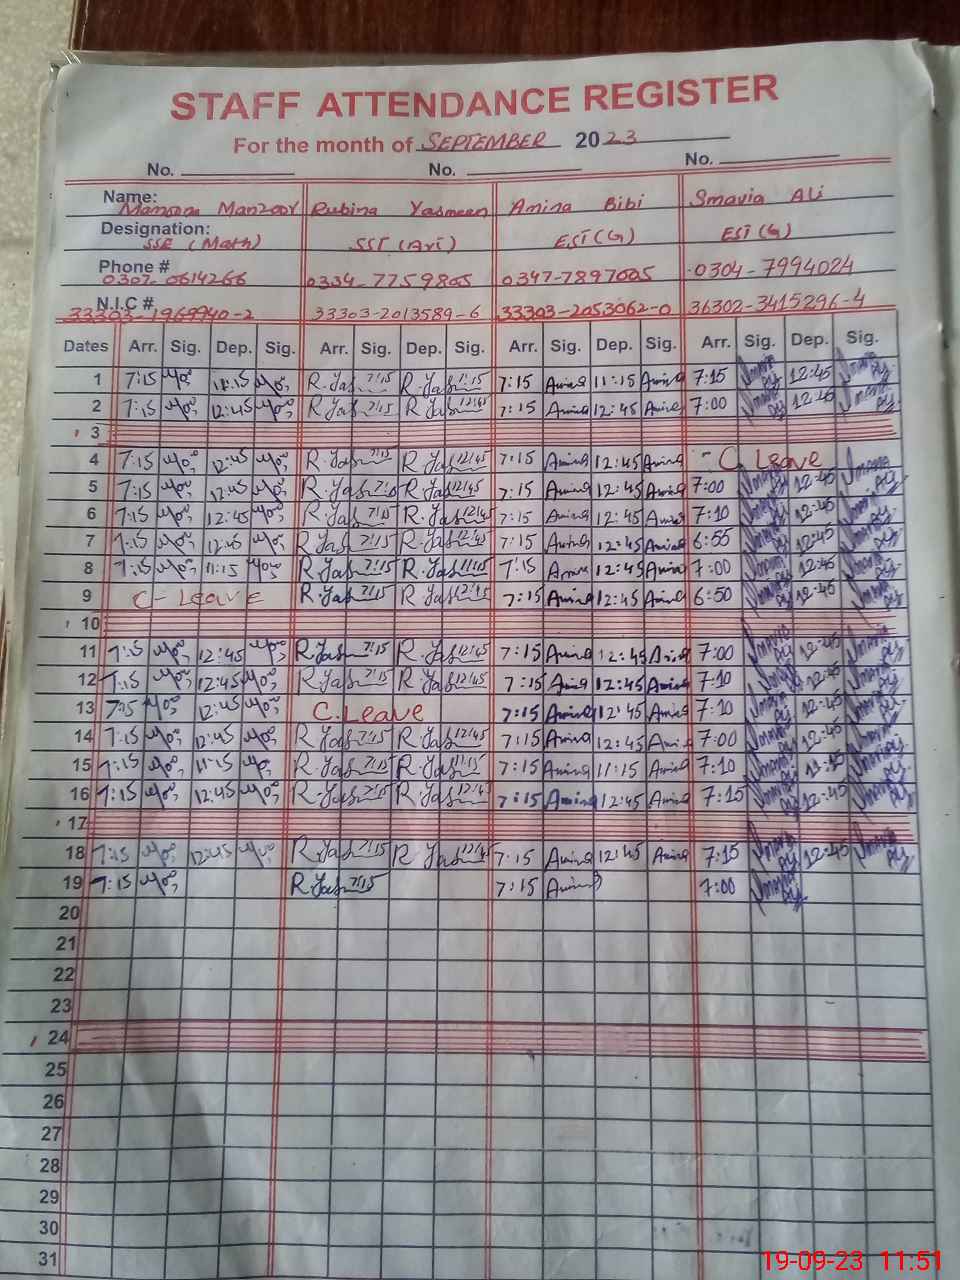 STAFF ATTENDANCE REGISTER
For the month of SEPTEMBER 2023
No. No. No.
Name: Manzoor Rubina Yasmeen Amina Bibi Smavia Ali
Designation: SSE (Math) SST (Ari) EST (G) EST (G)
Phone # 0307-0614266 0334-7759805 0347-7897005 0304-7994024
N.I.C # 33303-1969940-2 33303-2013589-6 33303-2053062-0 36302-3415296-4
Dates Arr. Sig. Dep. Sig. Arr. Sig. Dep. Sig. Arr. Sig. Dep. Sig. Arr. Sig. Dep. Sig.
1 7:15 11:15 R.Yas 7:15 R.Yas 7:15 Amina 11:15 Amina 7:15 12:45
2 7:15 12:45 R.Yas 7:15 R.Yas 12:45 7:15 Amina 12:45 Amina 7:00 12:45
3
4 7:15 12:45 R.Yas 7:15 R.Yas 12:45 7:15 Amina 12:45 Amina - C. Leave
5 7:15 12:45 R.Yas R.Yas 12:45 7:15 Amina 12:45 Amina 7:00 12:45
6 7:15 12:45 R.Yas 7:15 R.Yas 12:45 7:15 Amina 12:45 Amina 7:10 12:45
7 7:15 12:45 R.Yas 7:15 R.Yas 12:45 7:15 Amina 12:45 Amina 6:55 12:45
8 7:15 11:15 R.Yas 7:15 R.Yas 11:15 7:15 12:45 Amina 7:00 12:45
9 C- Leave R.Yas 7:15 R.Yas 7:15 Amina 12:45 Amina 6:50 12:45
10
11 7:15 12:45 R.Yas 7:15 R.Yas 12:45 7:15 Amina 12:45 Amina 7:00 12:45
12 7:15 12:45 R.Yas 7:15 R.Yas 12:45 7:15 Amina 12:45 Amina 7:10 12:45
13 7:15 12:45 C. Leave 7:15 Amina 12:45 Amina 7:10 12:45
14 7:15 12:45 R.Yas 7:15 R.Yas 12:45 7:15 Amina 12:45 Amina 7:00 12:45
15 7:15 11:15 R.Yas 7:15 R.Yas 11:15 7:15 Amina 11:15 Amina 7:10
16 7:15 12:45 R.Yas 7:15 R.Yas 12:45 7:15 Amina 12:45 Amina 7:15 12:45
17
18 7:15 12:45 R.Yas 7:15 R.Yas 12:45 7:15 Amina 12:45 Amina 7:15 12:45
19 7:15 R.Yas 7:15 7:15 Amina 7:00
20
21
22
23
24
25
26
27
28
29
30
31
19-09-23 11:51